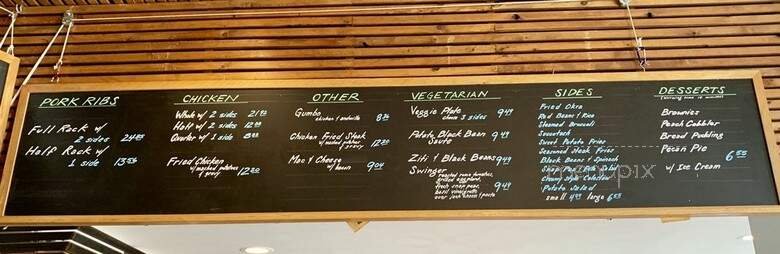 PORK RIBS
Full Rack w/
2 sides 24.85
Half Rack w/
1 side 13.56
CHICKEN
Whole w/ 2 sides
Half w/ 2 sides
Quarter w/ 1 side
Fried Chicken
w/ mashed potatoes
& gravy 12.20
OTHER
Gumbo
chicken & andouille
Chicken Fried Steak
w/ mashed potatoes
& gravy 12.20
Mac & Cheese
w/ bacon 9.04
VEGETARIAN
Veggie Plate
choose 3 sides 9.49
Potato, Black Bean
Saute 9.49
Ziti & Black Beans 9.49
Swinger
roasted roma tomatoes,
grilled eggplant,
fresh snap peas,
basil vinaigrette
over josh choose & pasta 9.49
SIDES
Fried Okra
Red Beans & Rice
Steamed Broccoli
Succotash
Sweet Potato Fries
Seasoned Steak Fries
Black Beans & Spinach
Creamy Style Coleslaw
Potato Salad
small 4.99 large 6.55
DESSERTS
Brownies
Peach Cobbler
Bread Pudding
Pecan Pie
6.55
w/ Ice Cream